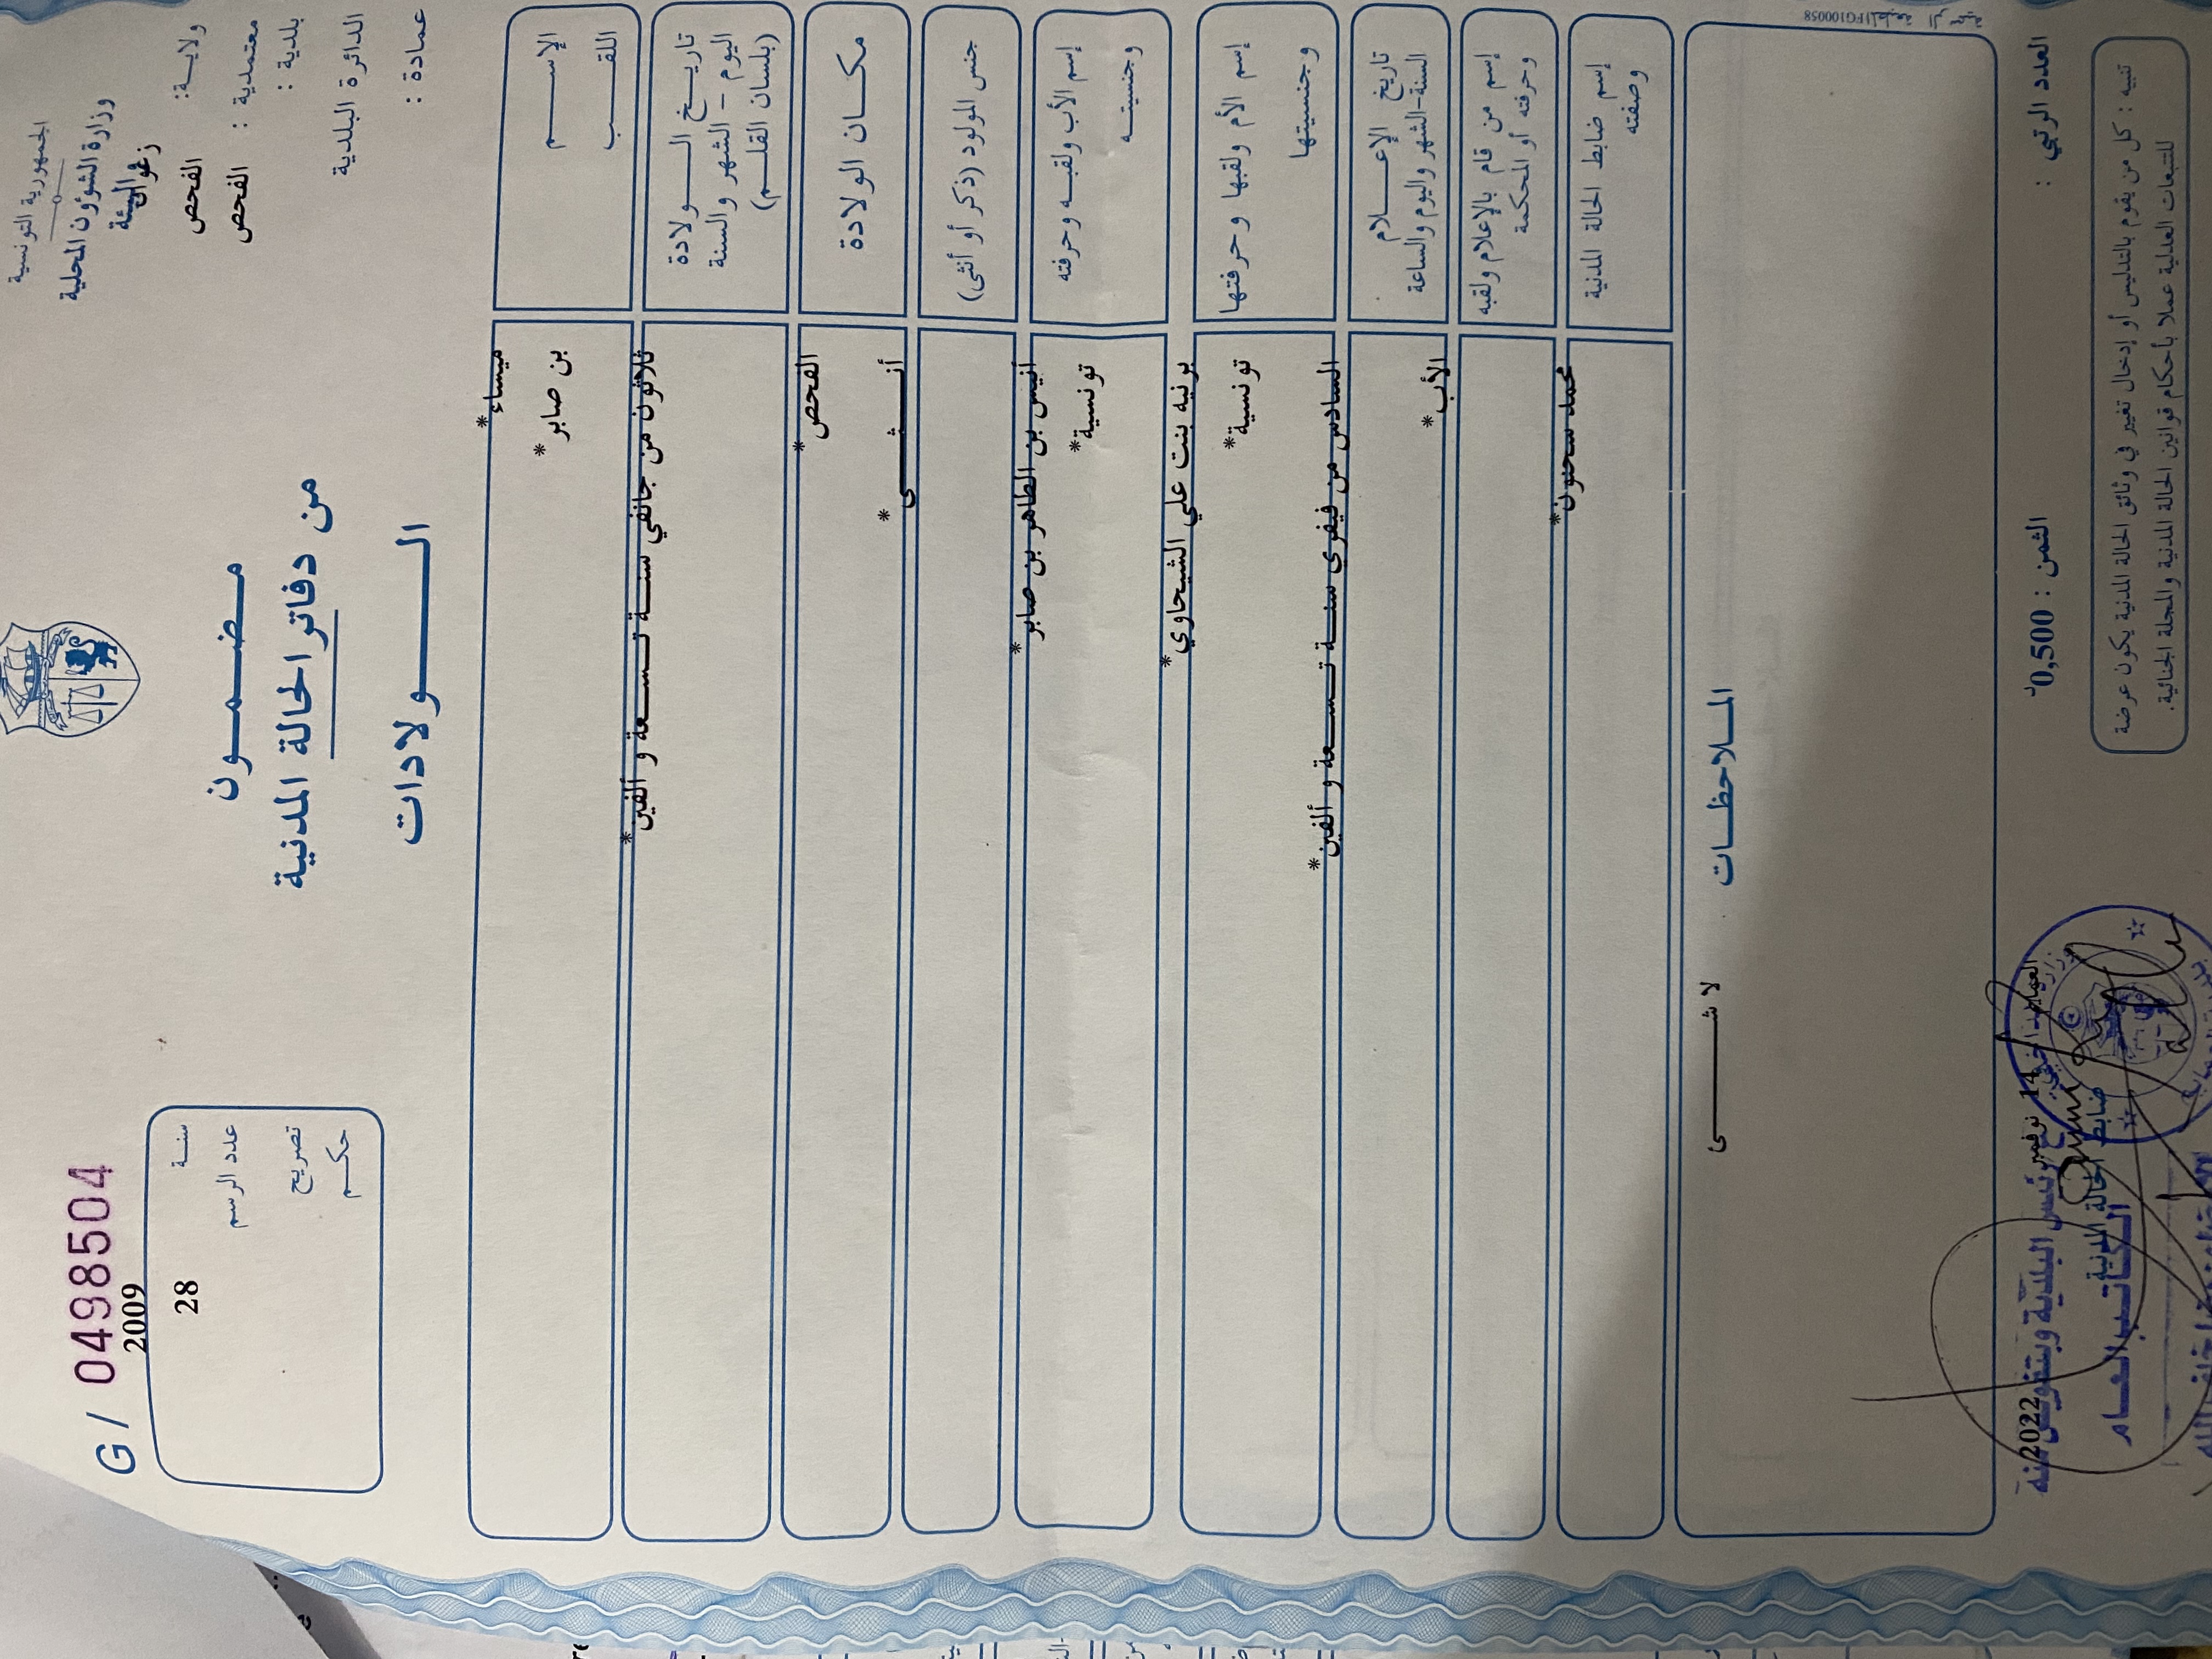 الجمهورية التونسية
وزارة الشؤون المحلية
والبيئة
زغوان
ولاية:
معتمدية : الفحص
بلدية : الفحص
الدائرة البلدية
عمادة :
G / 0498504
2009
سنة
28
عدد الرسم
تصريح
حكم
مضمون
من دفاتر الحالة المدنية
الولادات
الإسم
ميساء*
اللقب
بن صابر*
تاريخ الولادة
اليوم - الشهر والسنة
(بلسان القلم)
ثلاثون من جانفي سنة تسعة و ألفين*
مكان الولادة
الفحص*
جنس المولود (ذكر أو أنثى)
أنثى*
إسم الأب ولقبه وحرفته
أنيس بن الطاهر بن صابر*
وجنسيته
تونسية*
إسم الأم ولقبها وحرفتها
برنيه بنت علي الشيحاوي*
وجنسيتها
تونسية*
تاريخ الإعلام
السنة-الشهر واليوم والساعة
السادس من فيفري سنة تسعة و ألفين*
إسم من قام بالإعلام ولقبه
وحرفته أو المحكمة
الأب*
إسم ضابط الحالة المدنية
وصفته
محمد سحنون*
الملاحظات
لا شى
المطبعة الرسمية FG100058
العدد الرتبي :
الثمن : 0,500د
14 نوفمبر 2022
رئيس البلدية وبتفويض منه
ضابط الحالة المدنية
الكاتب العام
تنبيه : كل من يقوم بالتدليس أو إدخال تغيير في وثائق الحالة المدنية يكون عرضة
للتتبعات العدلية عملا بأحكام قوانين الحالة المدنية والمجلة الجنائية.